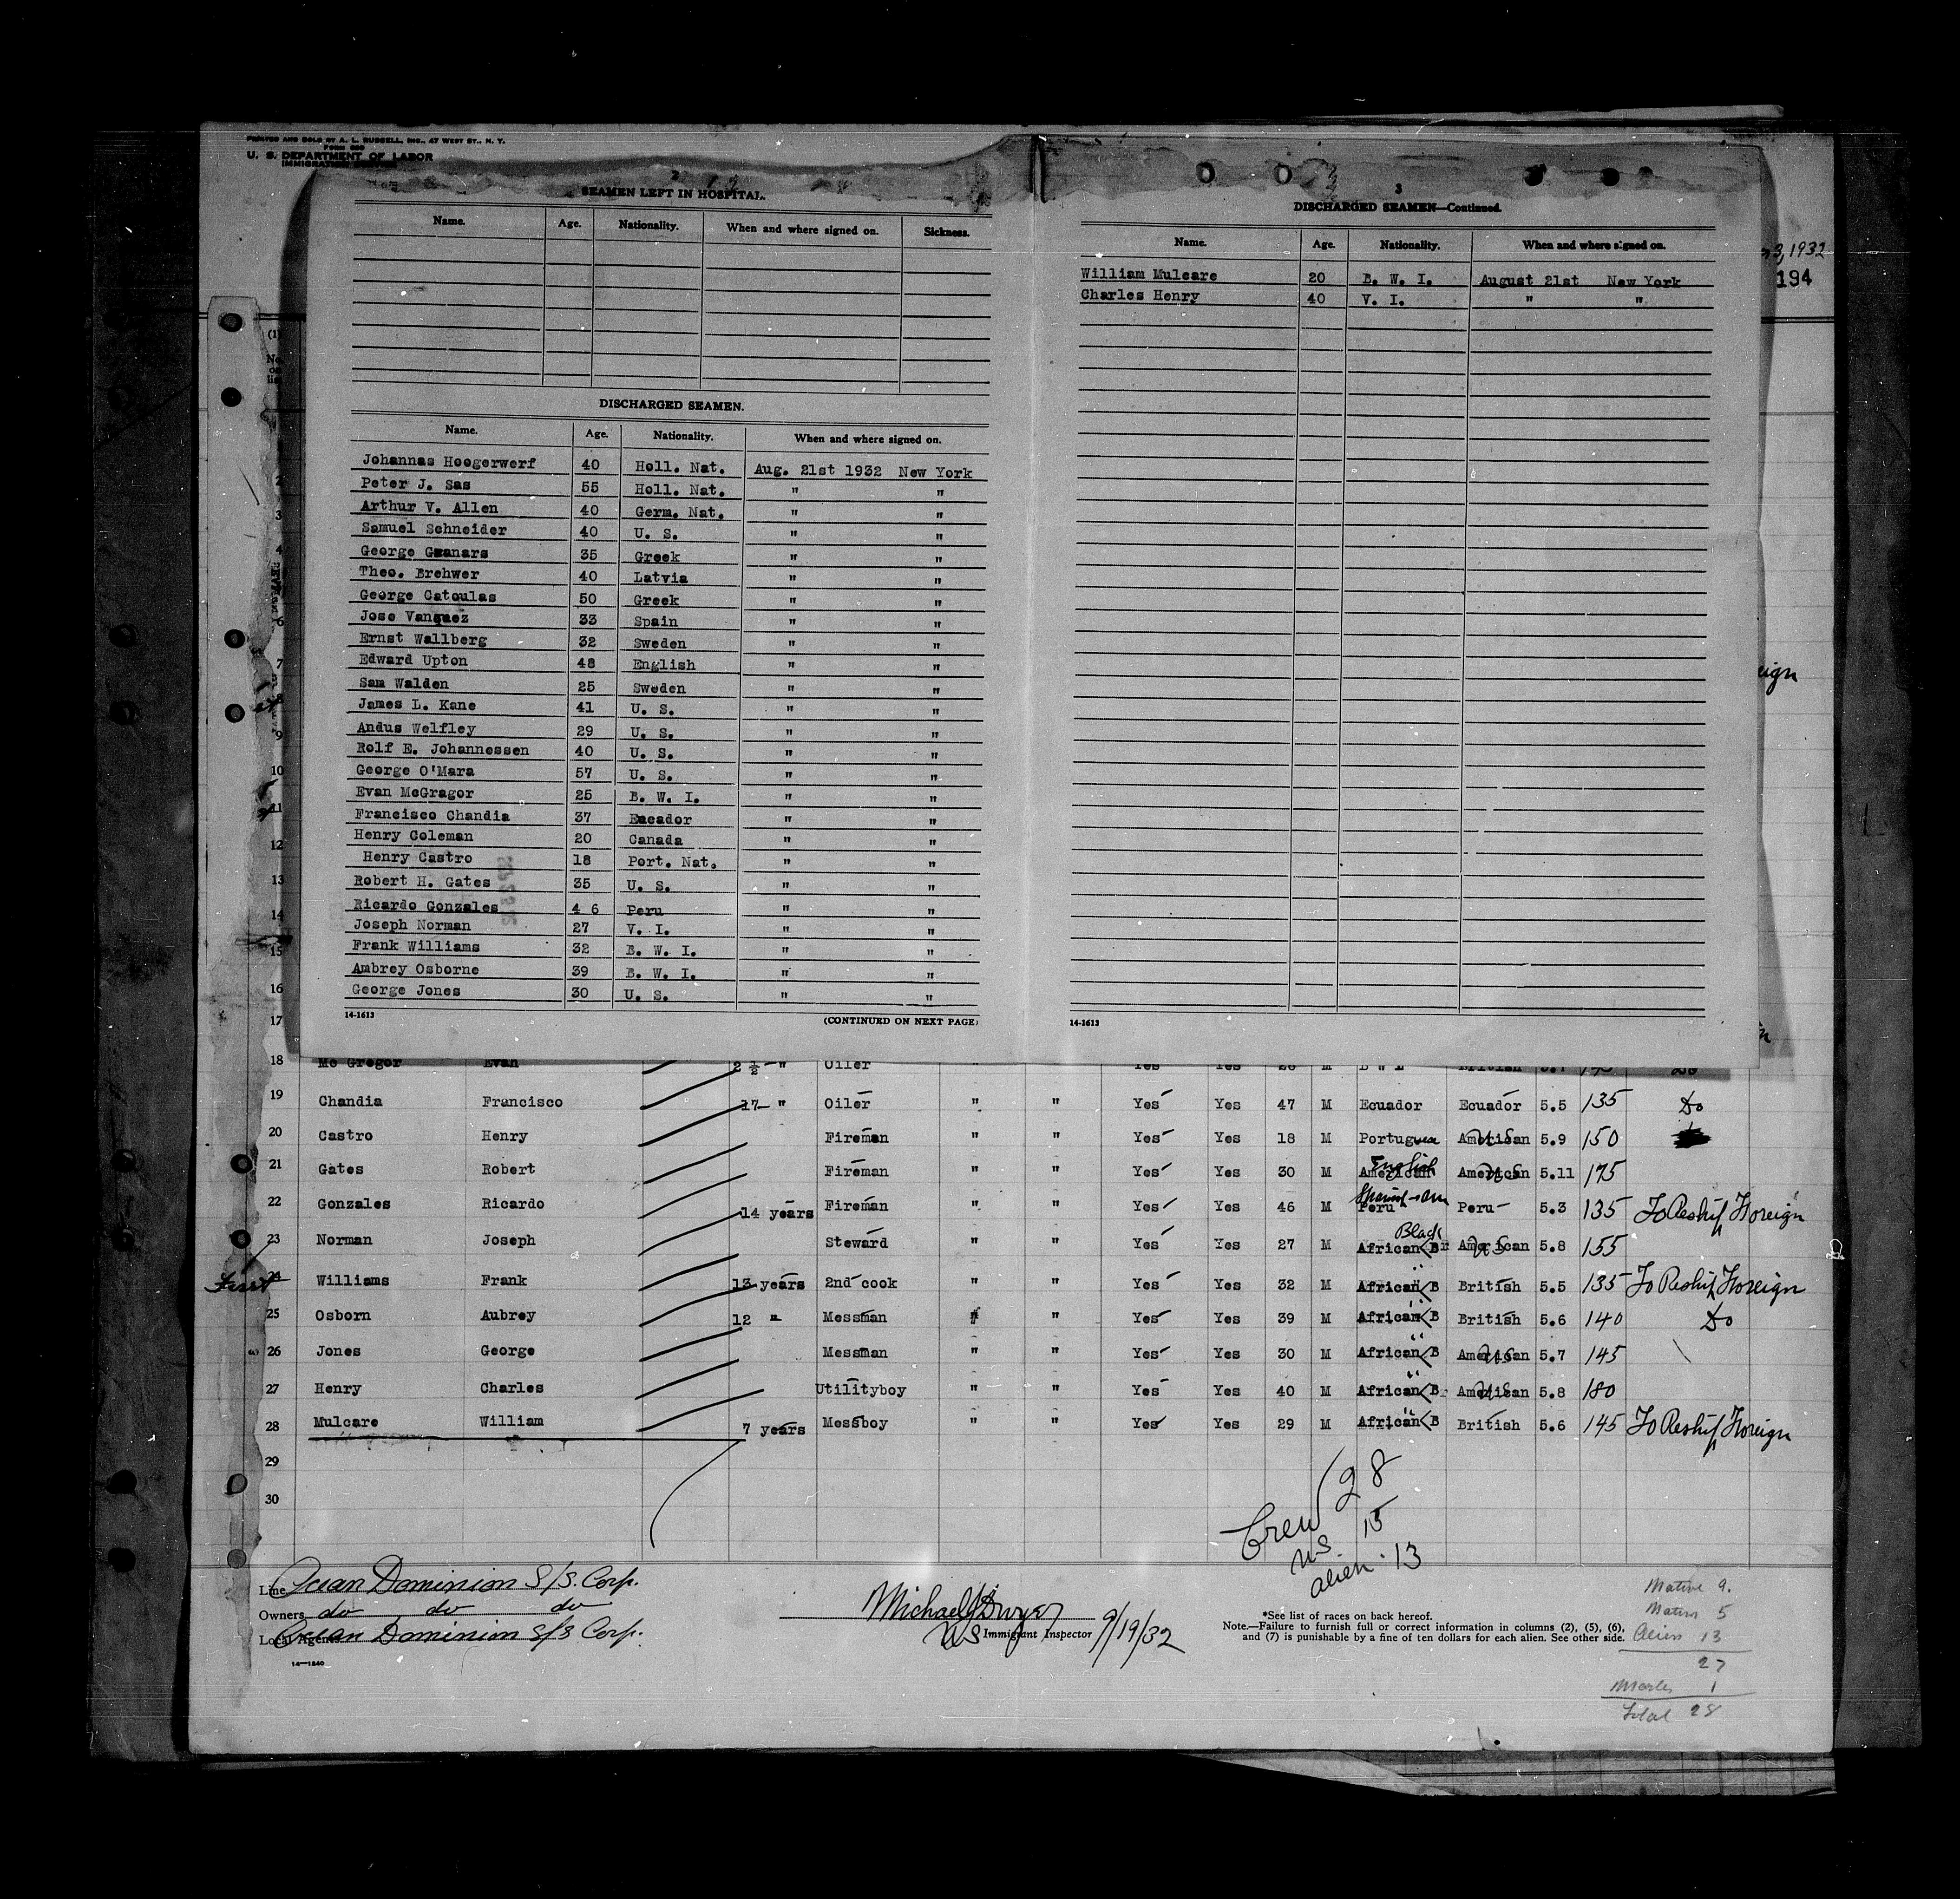 PRINTED AND SOLD BY A. L. RUSSELL, INC., 47 WEST ST., N. Y.
U. S. DEPARTMENT OF LABOR
3, 1932
194
2
SEAMEN LEFT IN HOSPITAL.
Name. Age. Nationality. When and where signed on. Sickness.
DISCHARGED SEAMEN.
Name. Age. Nationality. When and where signed on.
Johannas Hoogerwerf 40 Holl. Nat. Aug. 21st 1932 New York
Peter J. Sas 55 Holl. Nat. " "
Arthur V. Allen 40 Germ. Nat. " "
Samuel Schneider 40 U. S. " "
George 35 Greek " "
Theo. Brehwer 40 Latvia " "
George Catoulas 50 Greek " "
Jose Vanquez 33 Spain " "
Ernst Wallberg 32 Sweden " "
Edward Upton 48 English " "
Sam Walden 25 Sweden " "
James L. Kane 41 U. S. " "
Andus Welfley 29 U. S. " "
Rolf E. Johannessen 40 U. S. " "
George O'Mara 57 U. S. " "
Evan McGragor 25 B. W. I. " "
Francisco Chandia 37 Eacador " "
Henry Coleman 20 Canada " "
Henry Castro 18 Port. Nat. " "
Robert H. Gates 35 U. S. " "
Ricardo Gonzales 4 6 Peru " "
Joseph Norman 27 V. I. " "
Frank Williams 32 B. W. I. " "
Ambrey Osborne 39 B. W. I. " "
George Jones 30 U. S. " "
14-1613 (CONTINUED ON NEXT PAGE)
3
DISCHARGED SEAMEN—Continued.
Name. Age. Nationality. When and where signed on.
William Mulcare 20 B. W. I. August 21st New York
Charles Henry 40 V. I. " "
14-1613
18 Mc Gregor Evan 2 ½ " Oiler " " Yes Yes 26 M B W I British 5.7 145 Do
19 Chandia Francisco 17 " Oiler " " Yes Yes 47 M Ecuador Ecuador 5.5 135 Do
20 Castro Henry Fireman " " Yes Yes 18 M Portuguea American US 5.9 150
21 Gates Robert Fireman " " Yes Yes 30 M American English American US 5.11 175
22 Gonzales Ricardo 14 years Fireman " " Yes Yes 46 M Peru Spanish-Am Peru 5.3 135 To Reship Foreign
23 Norman Joseph Steward " " Yes Yes 27 M African (B Black American US 5.8 155
First
24 Williams Frank 13 years 2nd cook " " Yes Yes 32 M African (B " British 5.5 135 To Reship Foreign
25 Osborn Aubrey 12 " Messman " " Yes Yes 39 M African (B " British 5.6 140 Do
26 Jones George Messman " " Yes Yes 30 M African (B " American US 5.7 145
27 Henry Charles Utilityboy " " Yes Yes 40 M African (B " American US 5.8 180
28 Mulcare William 7 years Messboy " " Yes Yes 29 M African (B " British 5.6 145 To Reship Foreign
29
30
Crew 28
US 15
alien 13
Line Ocean Dominion S/S. Corp.
Owners do do do
Local Agents Ocean Dominion S/S Corp.
14—1240
Michael J Dwyer
US Immigrant Inspector 9/19/32
*See list of races on back hereof.
Note.—Failure to furnish full or correct information in columns (2), (5), (6),
and (7) is punishable by a fine of ten dollars for each alien. See other side.
Native 9.
Natur 5
Alien 13
27
Master 1
Total 28